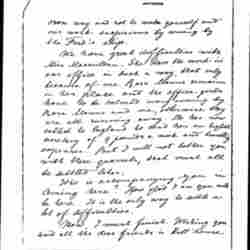 own way and not to make yourself and
our work suspicious by coming by
the Ford's ship.
We have great difficulties with
Miss Macmillan. She has the work in
our office in such a way, that only
because of me Rosa Manus remains
in her place and the office goes
Rosa Manus and me, otherwise they
are all running away. She has now
to England to
secretary of 4 pounds a week and
expense. But I will not bother you
with these quarrels, that must all
be settled later.
Who is accompanying you in
coming here? How glad I am you will
be here. It is the only way to settle a
lot of difficulties.
Now I must finish. Wishing you
and all the dear friends in Hull House